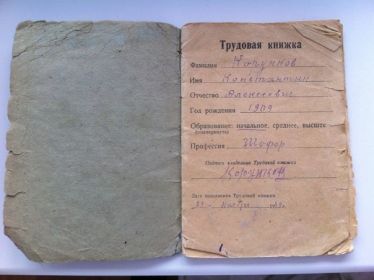 Трудовая книжка
Фамилия Корунков
Имя Константин
Отчество Алексеевич
Год рождения 1909
Образование: начальное, среднее, высшее
(подчеркнуть)
Профессия Шофер
Подпись владельца Трудовой книжки
Дата заполнения Трудовой книжки